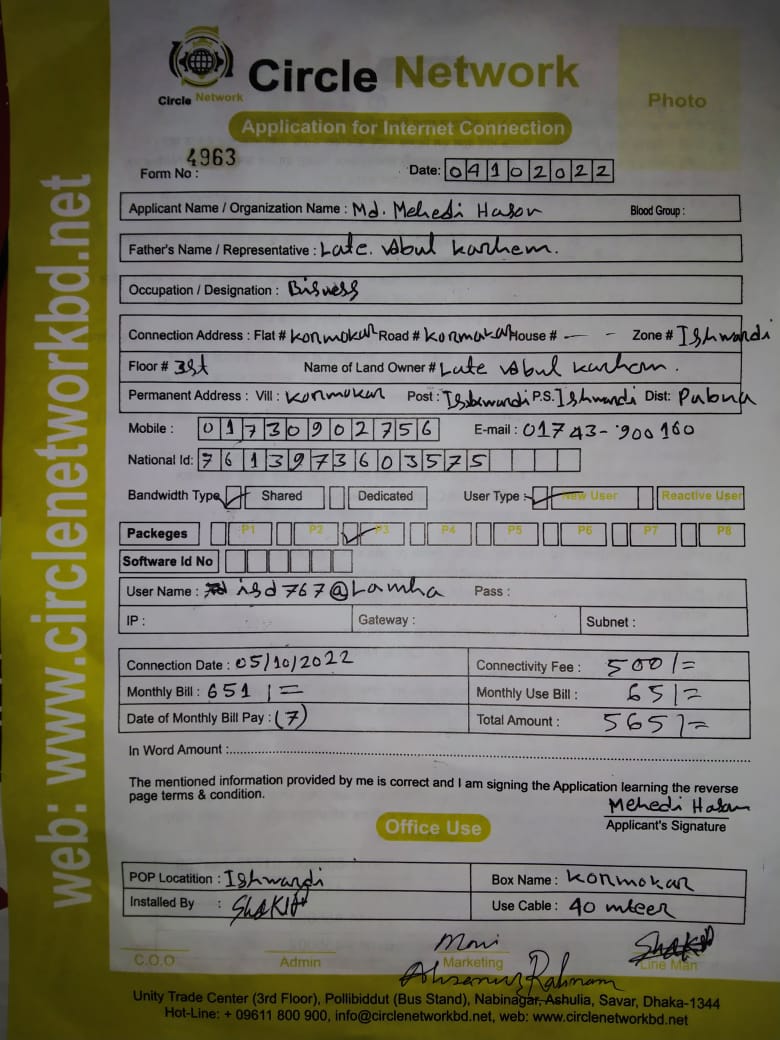 Circle Network
Circle Network
Photo
Application for Internet Connection
4963
Form No :
Date: 04102022
Applicant Name / Organization Name : Md. Mehedi Hasan Blood Group :
Father's Name / Representative : Late. Abul Kashem.
Occupation / Designation : Bisness
Connection Address : Flat # Kormokar Road # Kormokar House # — - Zone # Ishwardi
Floor # 3st Name of Land Owner # Late Abul Kashem.
Permanent Address : Vill : Kormokar Post : Ishwardi P.S. Ishwardi Dist: Pabna
Mobile : 01730902756 E-mail : 01743-900160
National Id: 7613973603575
Bandwidth Type Shared Dedicated User Type : New User Reactive User
Packeges P1 P2 P3 P4 P5 P6 P7 P8
Software Id No
User Name : isd767@Lamha Pass :
IP : Gateway : Subnet :
Connection Date : 05/10/2022 Connectivity Fee : 500/=
Monthly Bill : 651/= Monthly Use Bill : 65/=
Date of Monthly Bill Pay : (7) Total Amount : 565/=
In Word Amount :
The mentioned information provided by me is correct and I am signing the Application learning the reverse
page terms & condition.
Mehedi Hasan
Applicant's Signature
Office Use
POP Locatition : Ishwardi Box Name : Kormokar
Installed By : Shakib Use Cable : 40 mteer
Moni
C.O.O Admin Marketing Line Man
Unity Trade Center (3rd Floor), Pollibiddut (Bus Stand), Nabinagar, Ashulia, Savar, Dhaka-1344
Hot-Line: + 09611 800 900, info@circlenetworkbd.net, web: www.circlenetworkbd.net
web: www.circlenetworkbd.net